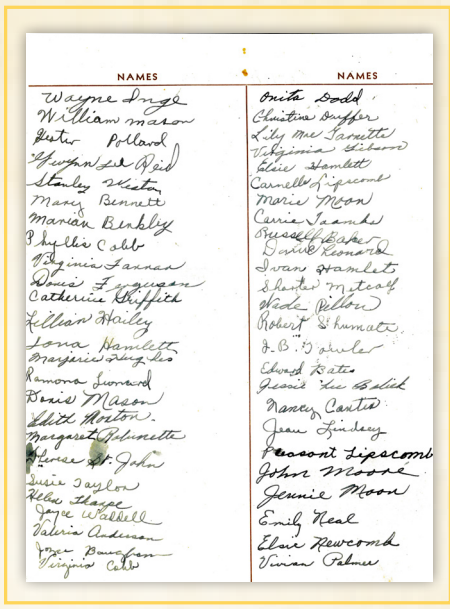 NAMES
Wayne Inge
William Mason
Hester Pollard
Gwynn Lee Reid
Stanley Weston
Mary Bennett
Marian Binkley
Phyllis Cobb
Virginia Fannan
Doris Ferguson
Catherine Griffith
Lillian Hailey
Iona Hamlett
Marjorie Hughes
Ramona Leonard
Doris Mason
Edith Moxton
Margaret Robinette
St. John
Susie Taylor
Helen Tharpe
Joyce Waddell
Valeria Anderson
Joyce Baughan
Virginia Cobb
NAMES
Onita Dodd
Christine Duffer
Lily Mae Farnette
Virginia Gibson
Elsie Hamlett
Carnell Lipscomb
Marie Moon
Carrie Toombs
Russell Baker
David Leonard
Ivan Hamlet
Shorter Metcalf
Wade Pillow
Robert Shumate
J.B. Fowler
Edward Bates
Jessie Lee Balick
Nancy Canter
Jean Lindsey
Peasant Lipscomb
John Moore
Jennie Moon
Emily Neal
Elsie Newcomb
Vivian Palmer